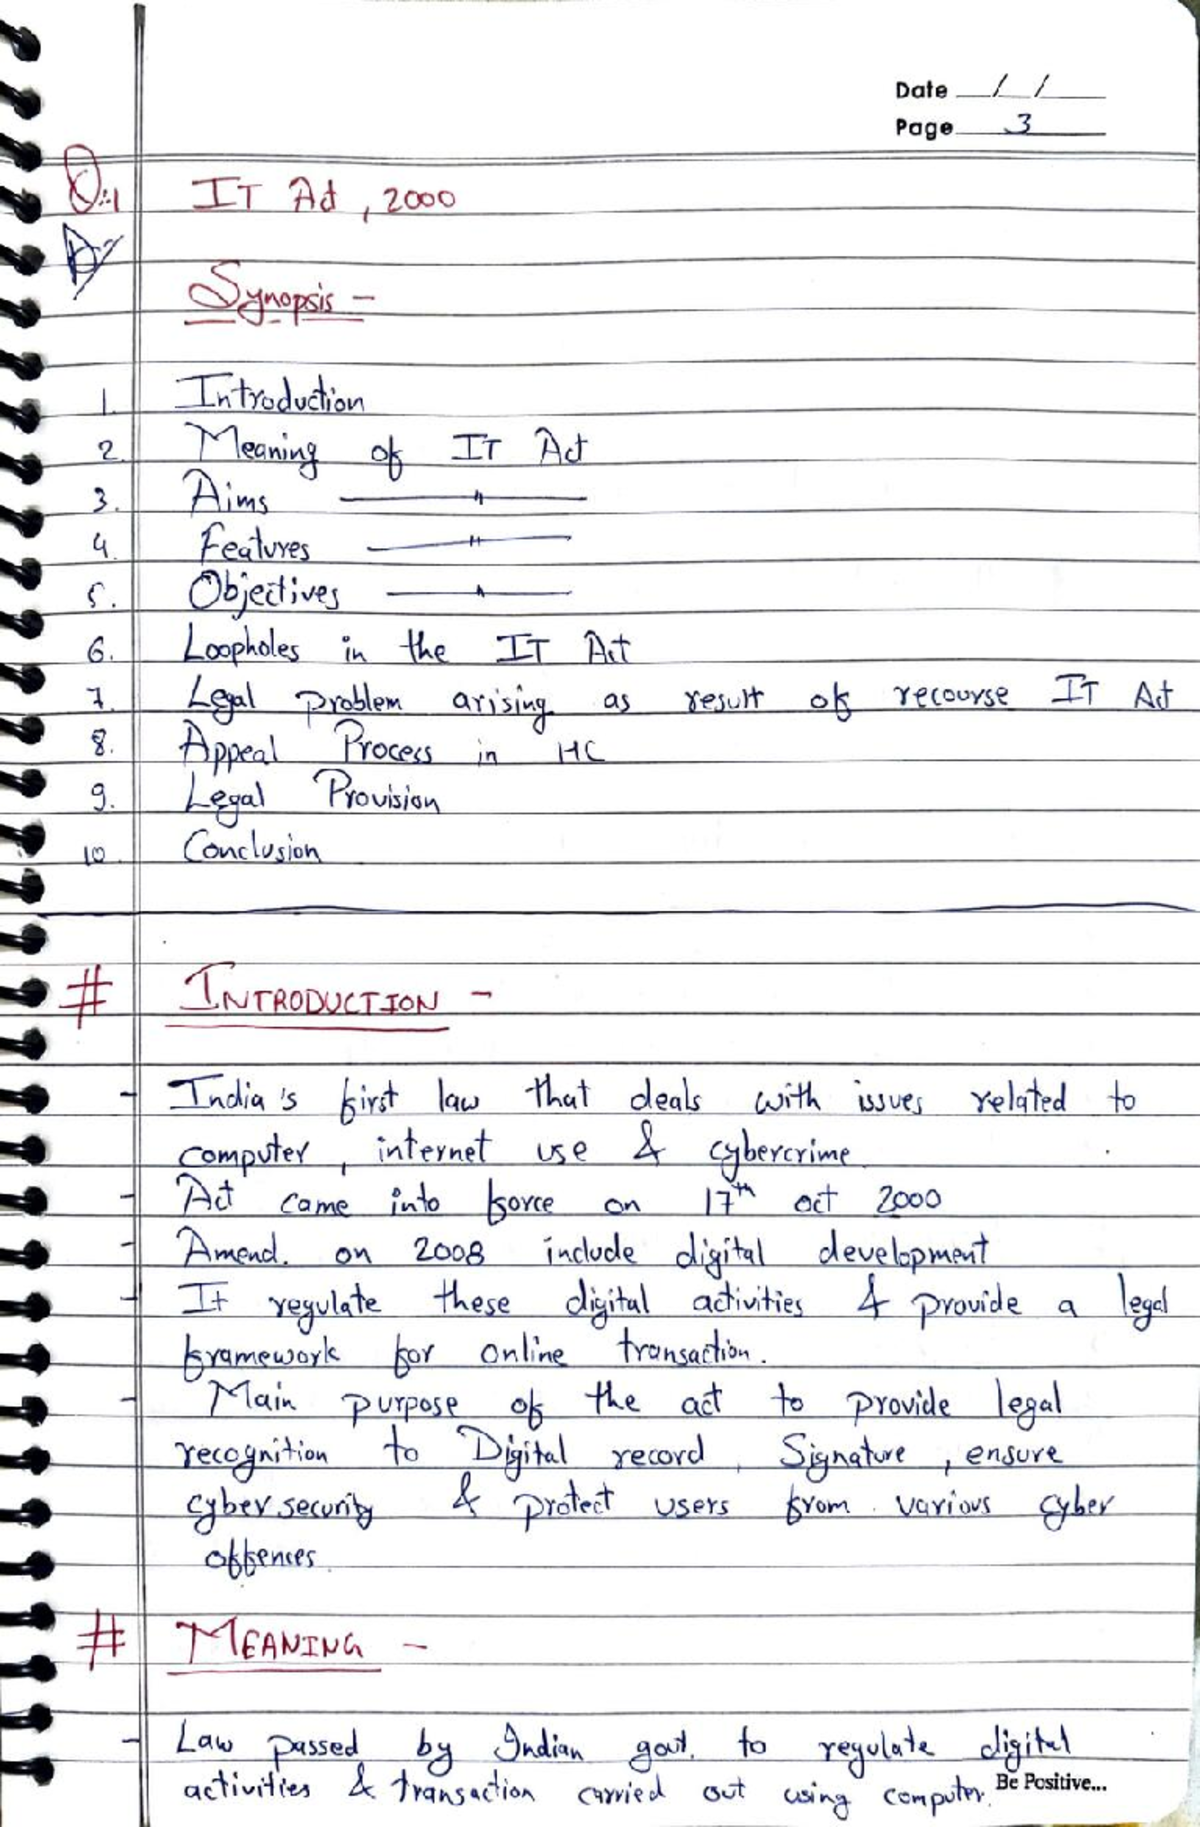 Date / /
Page 3
Q:1 IT Act, 2000
A/
Synopsis -
1. Introduction
2. Meaning of IT Act
3. Aims —— " ——
4. Features —— " ——
5. Objectives —— " ——
6. Loopholes in the IT Act
7. Legal problem arising as result of recourse IT Act
8. Appeal Process in HC
9. Legal Provision
10. Conclusion
# INTRODUCTION -
- India's first law that deals with issues related to
computer, internet use & cybercrime
- Act came into force on 17th oct 2000
- Amend. on 2008 include digital development
- It regulate these digital activities & provide a legal
framework for online transaction.
- Main purpose of the act to provide legal
recognition to Digital record, Signature, ensure
cyber security & protect users from various cyber
offences
# MEANING -
- Law passed by Indian govt. to regulate digital
activities & transaction carried out using computer.
Be Positive...